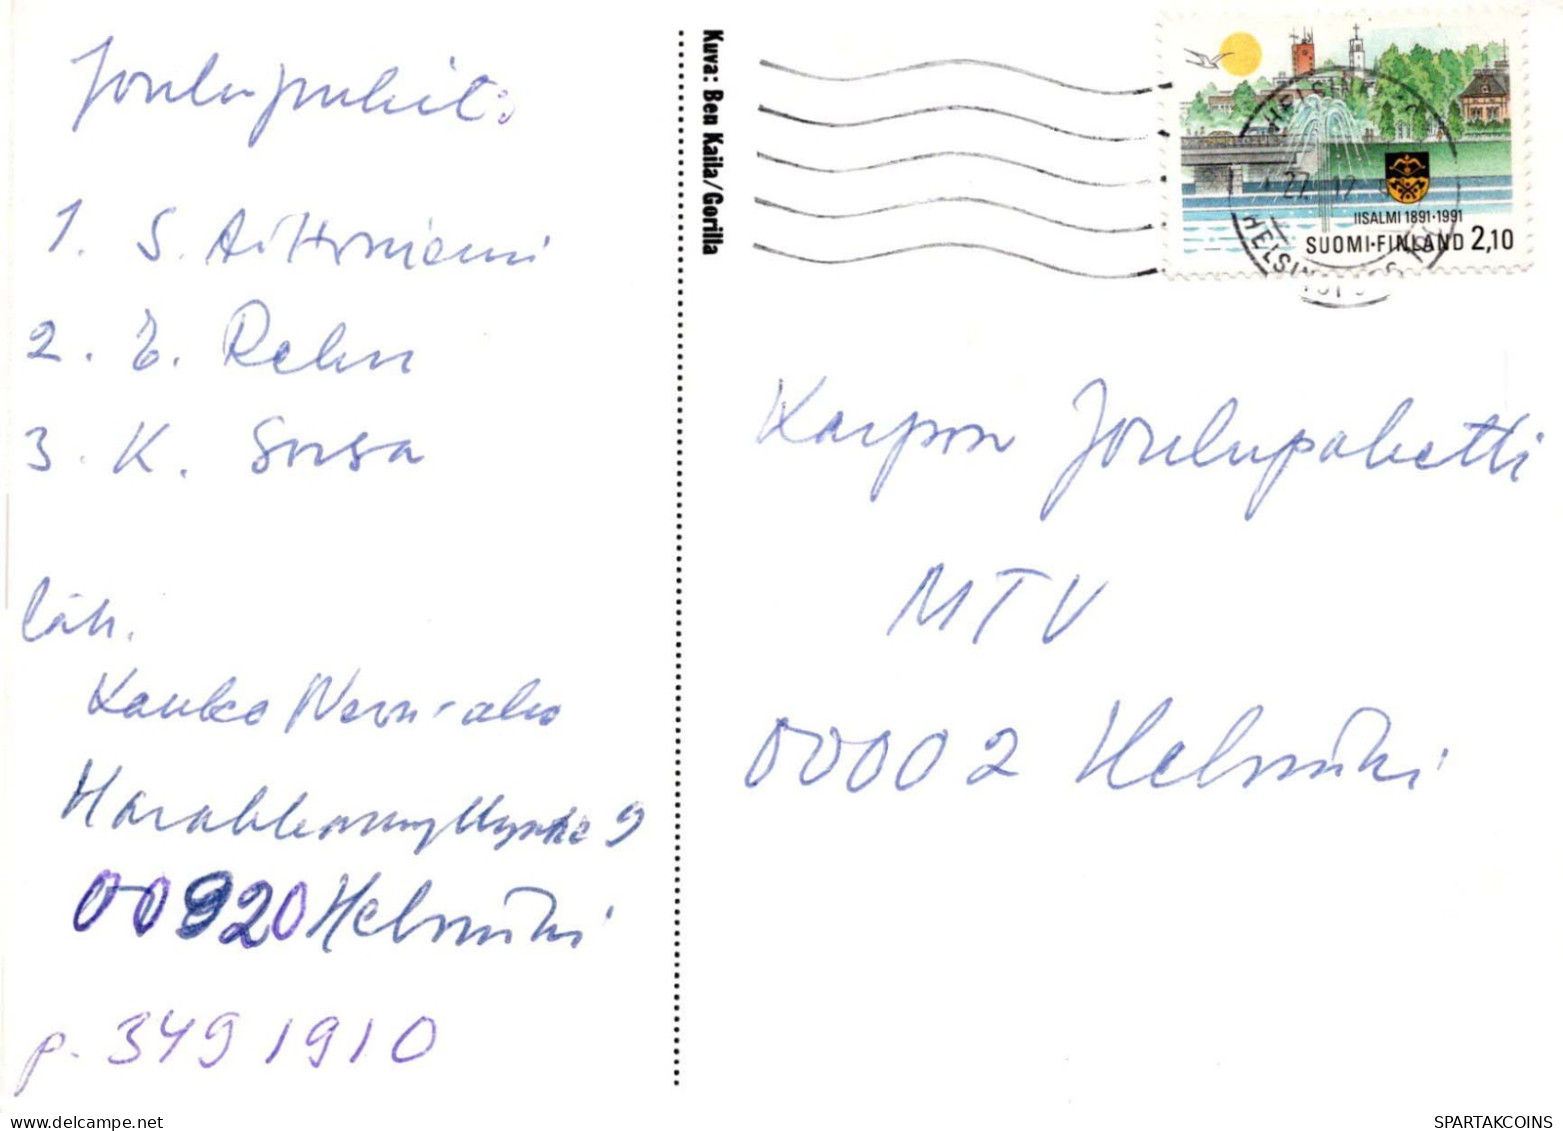 Joulupukit:
1. S. Aittoniemi
2. E. Rehn
3. K. Sorsa
läh.
Kauko
Harakkamyllyntie 9
00920 Helsinki
p. 349 1910
Kuva: Ben Kaila/Gorilla
IISALMI 1891·1991
SUOMI·FINLAND 2,10
Karpon Joulupaketti
MTV
00002 Helsinki
www.spartakcoins.delcampe.net
SPARTAKCOINS